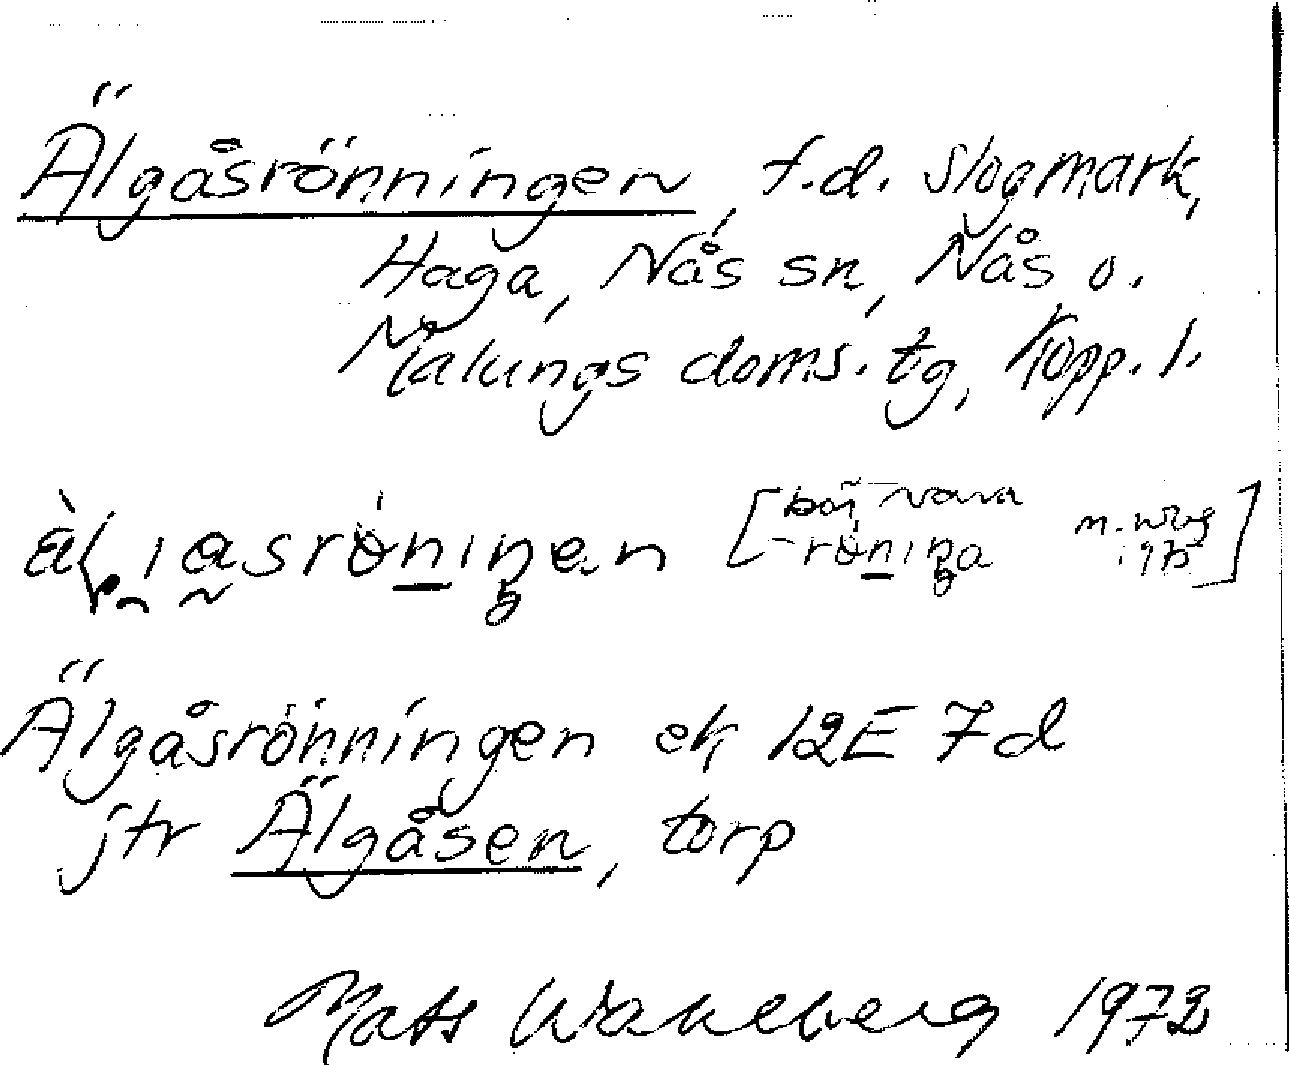 Älgåsrönningen, f.d. slogmark,
Haga, Nås sn, Nås o.
Malungs doms. tg, Kopp. l.
[bör vara
Älgåsrönningen ek 12E 7d
jfr Älgåsen, torp
Mats Wahlberg 1972